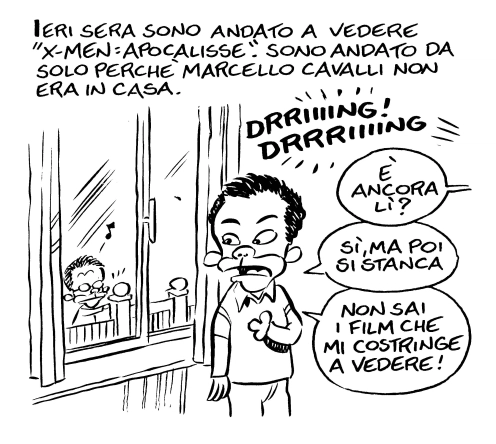 IERI SERA SONO ANDATO A VEDERE
"X-MEN: APOCALISSE". SONO ANDATO DA
SOLO PERCHÈ MARCELLO CAVALLI NON
ERA IN CASA.
DRRIIIING!
DRRRIIIING
È
ANCORA
LÌ?
SÌ, MA POI
SI STANCA
NON SAI
I FILM CHE
MI COSTRINGE
A VEDERE!